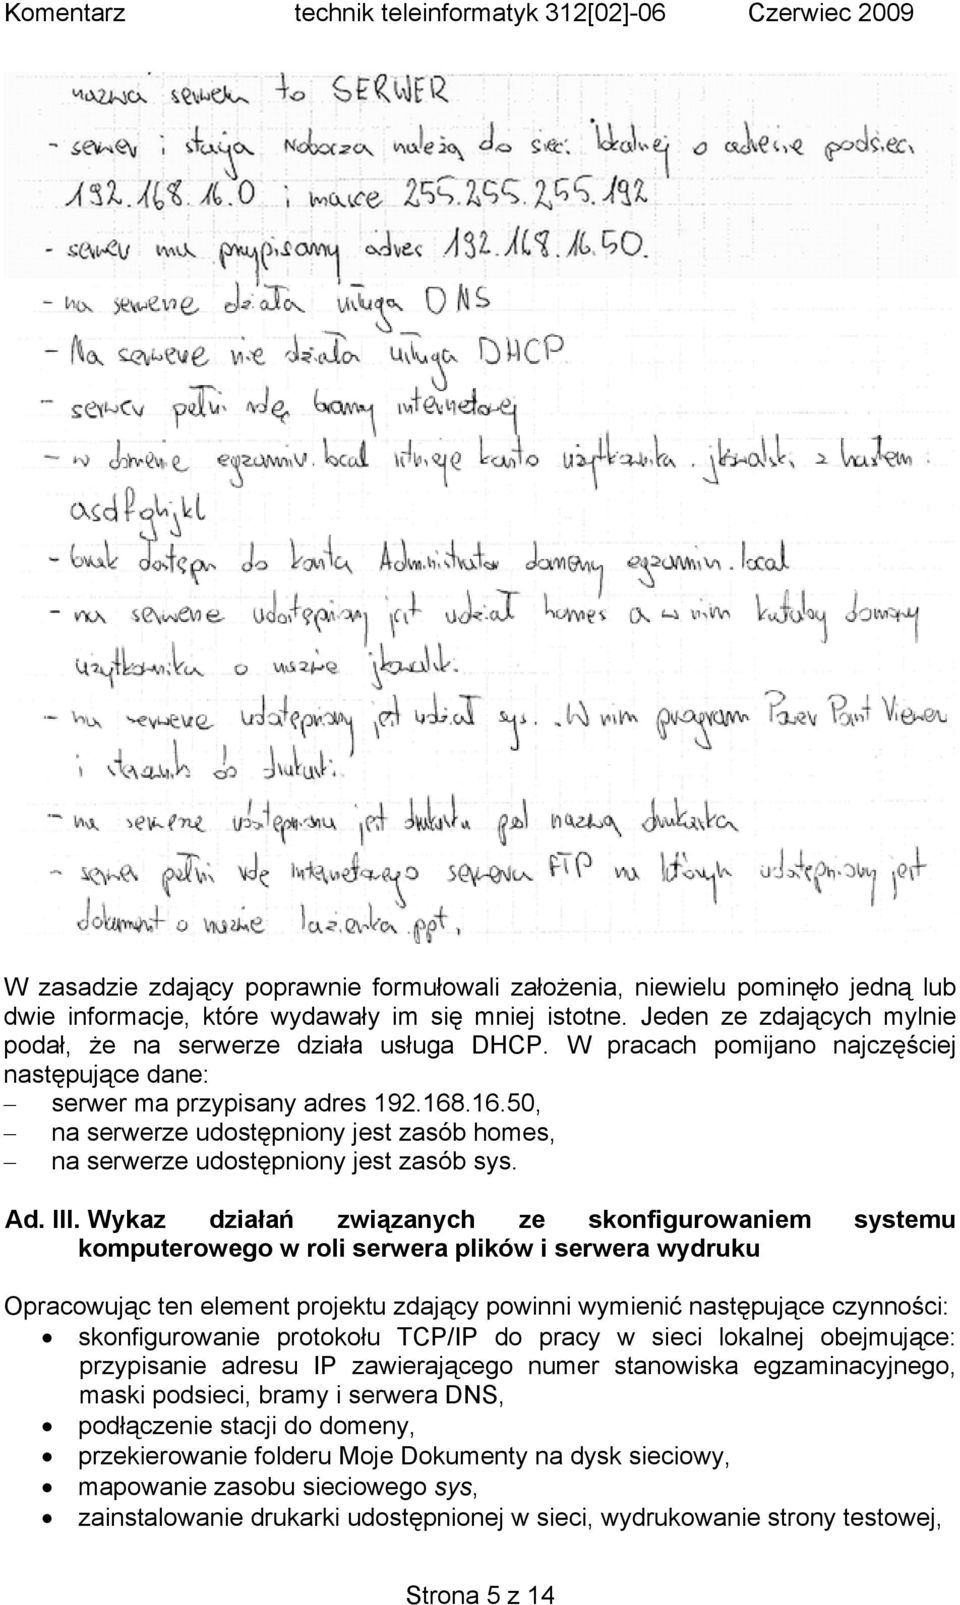 Komentarz technik teleinformatyk 312[02]-06 Czerwiec 2009
nazwa serweru to SERWER
- serwer i stacja robocza należą do sieci lokalnej o adresie podsieci
192.168.16.0 i masce 255.255.255.192
- serwer ma przypisany adres 192.168.16.50.
- na serwerze działa usługa DNS
- Na serwerze nie działa usługa DHCP
- serwer pełni rolę bramy internetowej
- w domenie egzamin.local istnieje konto użytkownika jkowalski z hasłem
asdfghjkl
- brak dostępu do konta Administrator domeny egzamin.local
- na serwerze udostępniony jest udział homes a w nim katalog domowy
użytkownika o nazwie jkowalski.
- na serwerze udostępniony jest udział sys. W nim program Power Point Viewer
i sterownik do drukarki.
- na serwerze udostępniona jest drukarka pod nazwą drukarka
- serwer pełni rolę internetowego serwera FTP na których udostępniony jest
dokument o nazwie lazienka.ppt,
W zasadzie zdający poprawnie formułowali założenia, niewielu pominęło jedną lub
dwie informacje, które wydawały im się mniej istotne. Jeden ze zdających mylnie
podał, że na serwerze działa usługa DHCP. W pracach pomijano najczęściej
następujące dane:
– serwer ma przypisany adres 192.168.16.50,
– na serwerze udostępniony jest zasób homes,
– na serwerze udostępniony jest zasób sys.
Ad. III. Wykaz działań związanych ze skonfigurowaniem systemu
komputerowego w roli serwera plików i serwera wydruku
Opracowując ten element projektu zdający powinni wymienić następujące czynności:
• skonfigurowanie protokołu TCP/IP do pracy w sieci lokalnej obejmujące:
przypisanie adresu IP zawierającego numer stanowiska egzaminacyjnego,
maski podsieci, bramy i serwera DNS,
• podłączenie stacji do domeny,
• przekierowanie folderu Moje Dokumenty na dysk sieciowy,
• mapowanie zasobu sieciowego sys,
• zainstalowanie drukarki udostępnionej w sieci, wydrukowanie strony testowej,
Strona 5 z 14